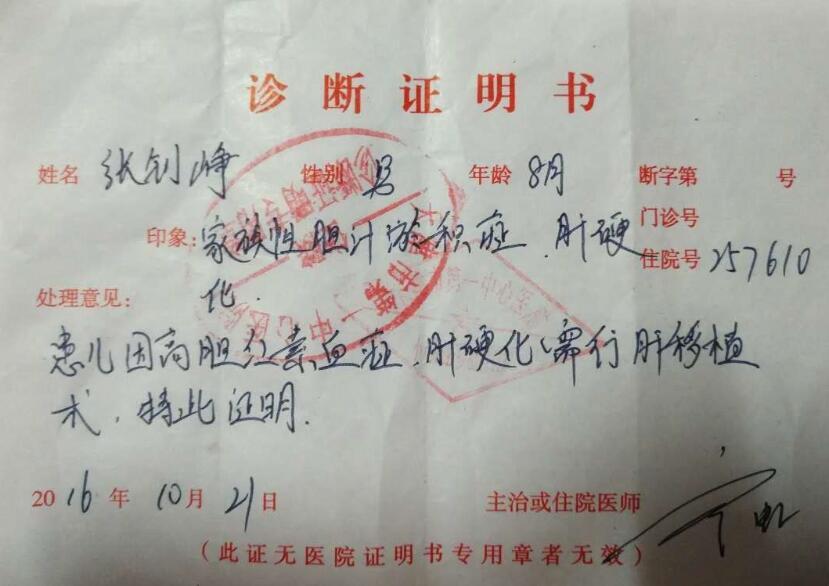 诊断证明书
姓名 张钊峥 性别 男 年龄 8月 断字第 号
门诊号
印象: 家族性胆汁淤积症、肝硬
住院号 257610
化.
处理意见:
患儿因高胆红素血症、肝硬化需行肝移植
术,特此证明.
2016年10月21日 主治或住院医师
(此证无医院证明书专用章者无效)